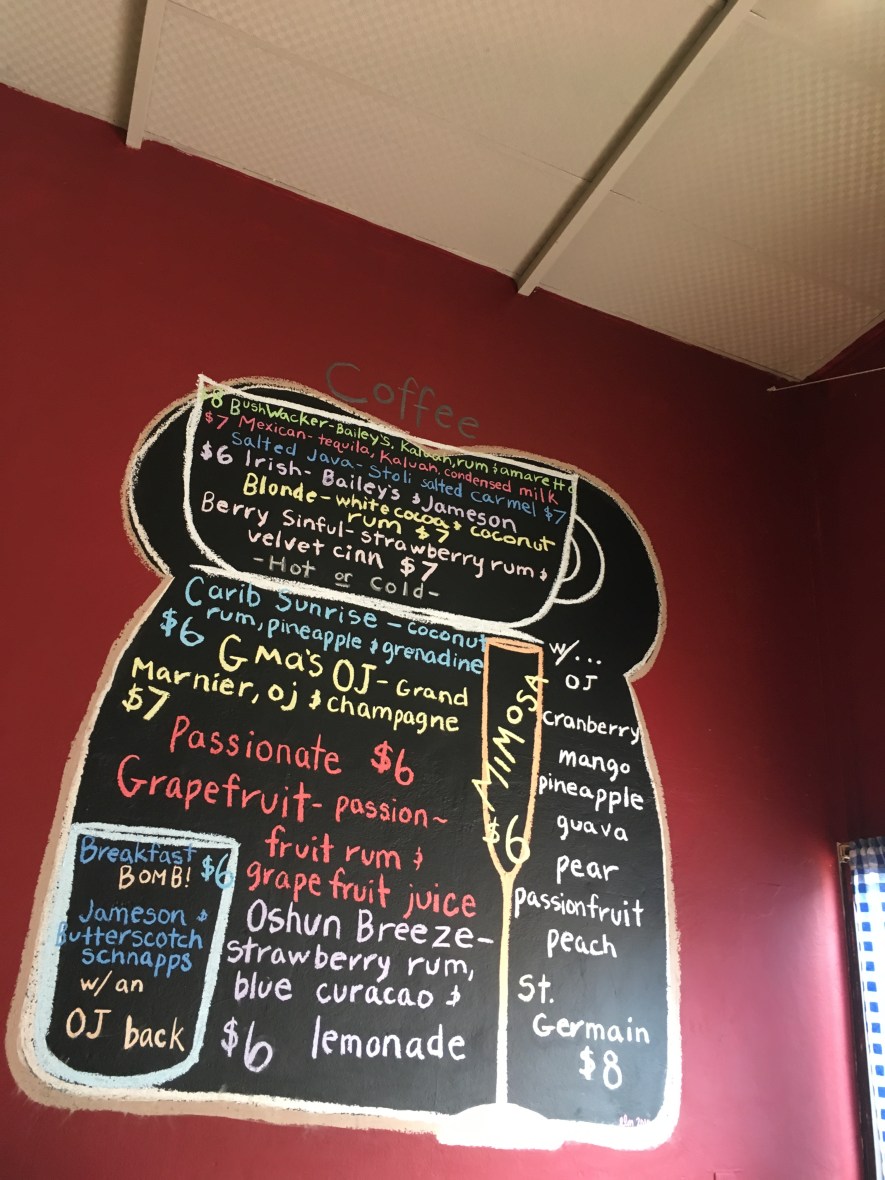 Coffee
$8 BushWacker-Bailey's, Kaluah, rum & amaretto
$7 Mexican-tequila, Kaluah, condensed milk
Salted Java-Stoli salted carmel $7
$6 Irish-Bailey's & Jameson
Blonde-white cocoa & coconut
rum $7
Berry Sinful-strawberry rum &
velvet cinn $7
-Hot or Cold-
Carib Sunrise-coconut
$6 rum, pineapple & grenadine
GMa's OJ-Grand
Marnier, oj & champagne
$7
Passionate $6
Grapefruit-passion~
fruit rum &
grapefruit juice
Oshun Breeze-
strawberry rum,
blue curacao &
$6 lemonade
Breakfast $6
BOMB!
Jameson &
Butterscotch
schnapps
w/an
OJ back
MIMOSA
$6
w/...
OJ
cranberry
mango
pineapple
guava
pear
passionfruit
peach
St.
Germain
$8